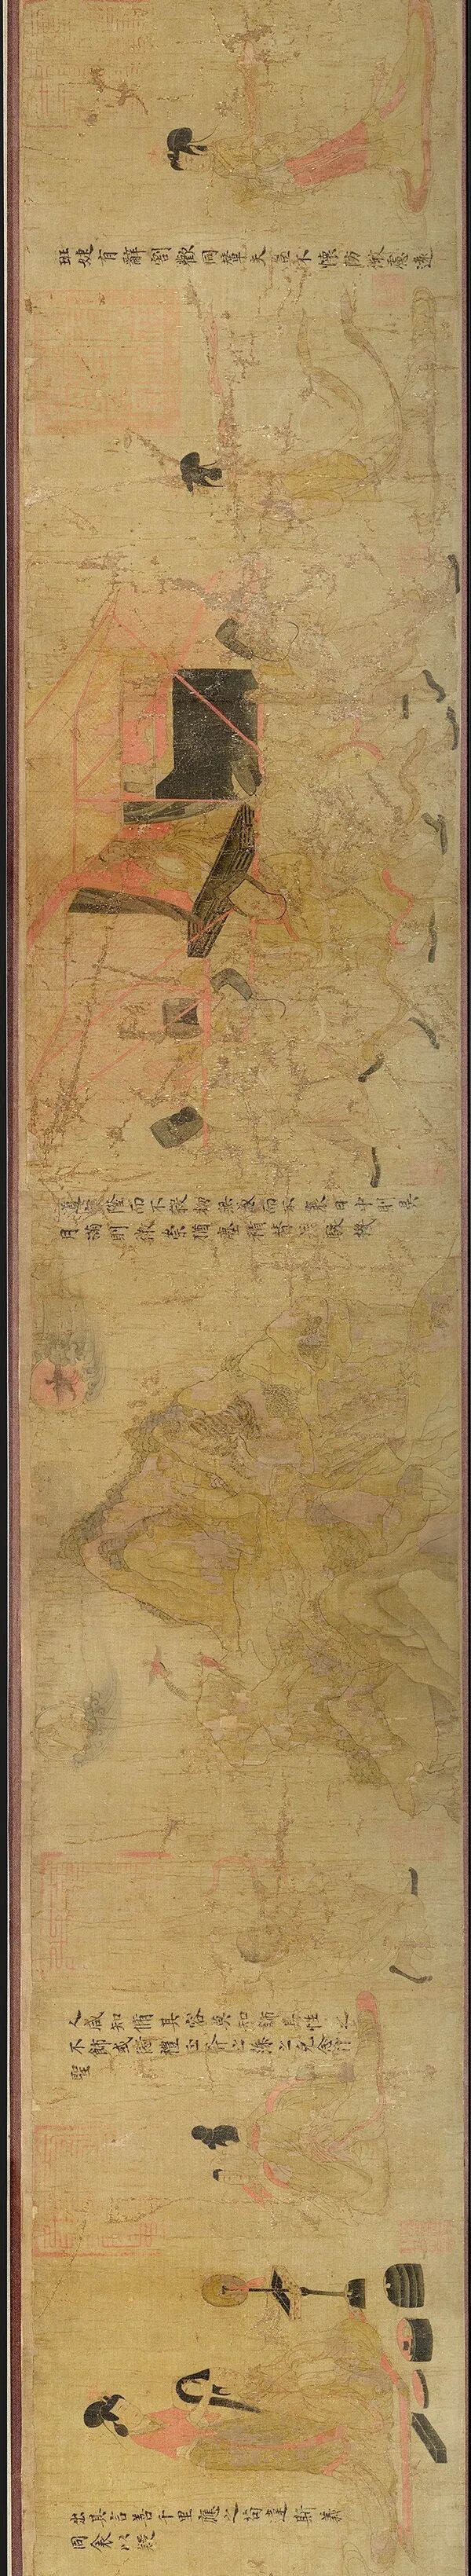 班婕有辭割歡同輦夫豈不懷防微慮遠
道罔隆而不殺物無盛而不衰日中則昃
月滿則微崇猶塵積替若駭機
人咸知脩其容莫知飾其性之
不飾或愆禮正斧之藻之克念作
聖
出其言善千里應之苟違斯義
同衾以疑